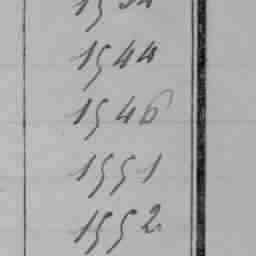 1544
1546
1551
1552